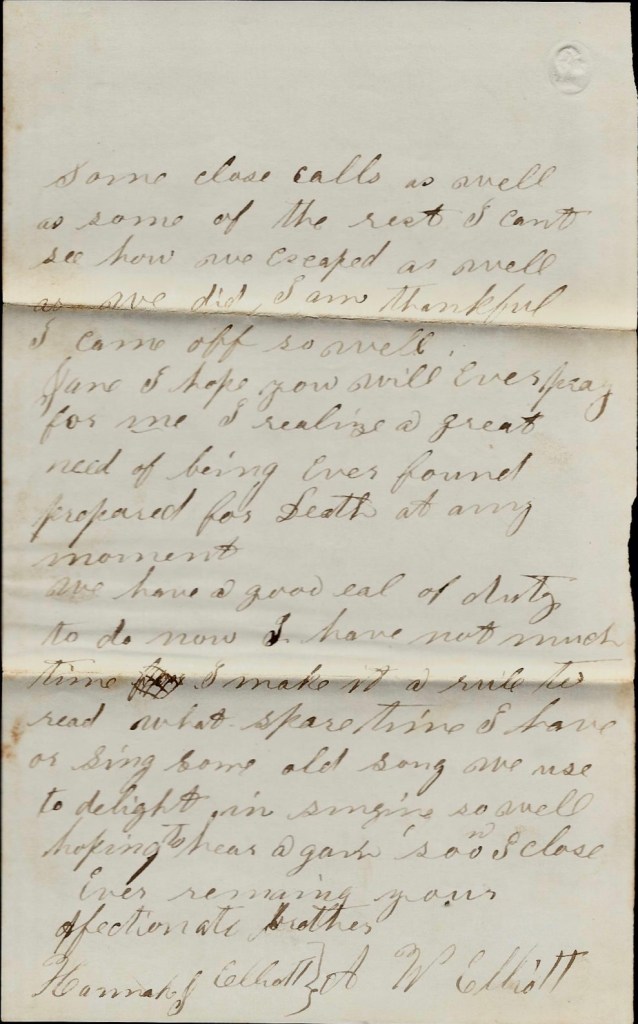 Some close calls as well
as some of the rest I cant
see how we escaped as well
as we did, I am thankful
I came off so well.
Jane I hope you will Ever pray
for me I realize a great
need of being Ever found
prepared for Death at any
moment
We have a good eal of duty
to do now I have not much
time I make it a rule to
read what spare time I have
or Sing some old song we use
to delight in singing so well
hoping to hear a gain soon I close
Ever remaing your
affectionate brother
Hannah J Elliott } A W Elliott